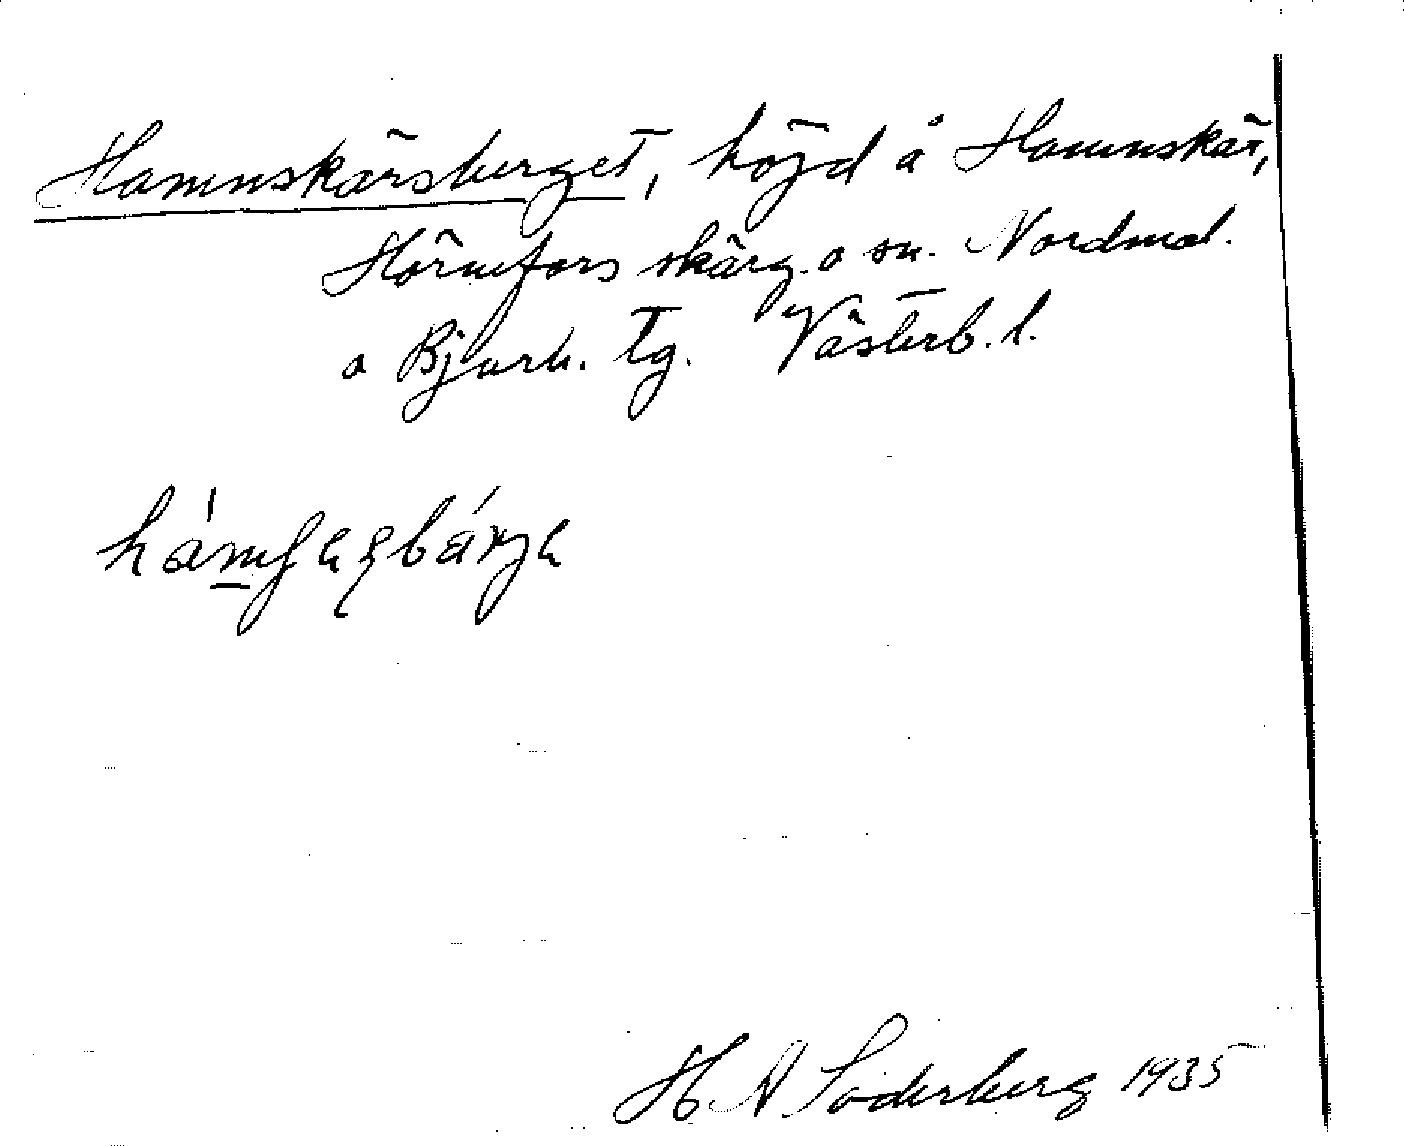 Hamnskärsberget, höjd å Hamnskär,
Hörnefors skärg. o sn. Nordmal.
o Bjurh. tg. Västerb. l.
H A Söderberg 1935